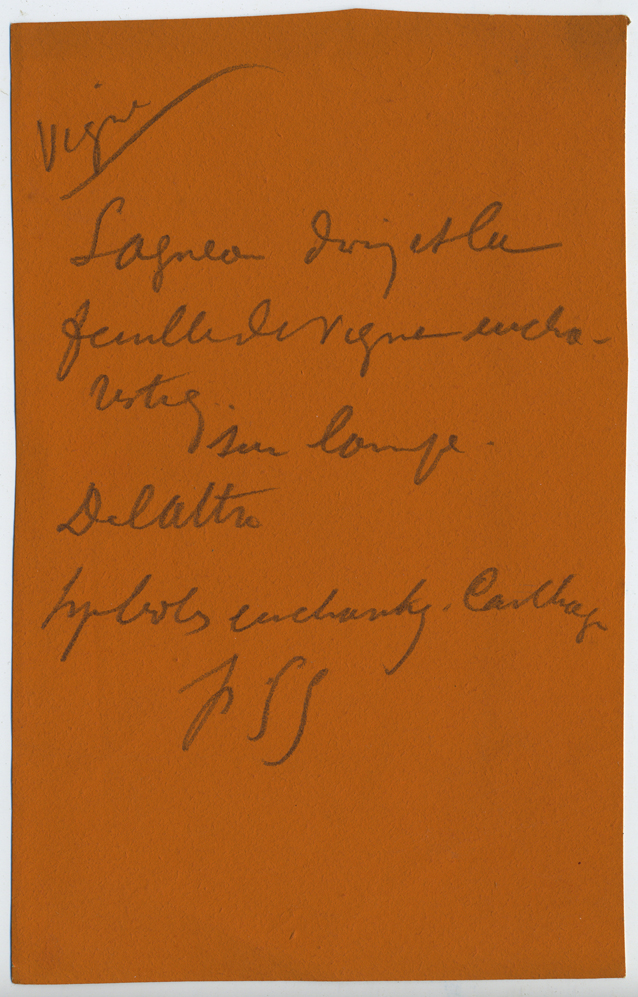 Vigne
L'agneau divin et la
feuille de vigne eucha-
ristiq.
sur lampe.
Delattre
Symboles eucharistiq. Carthage
p.